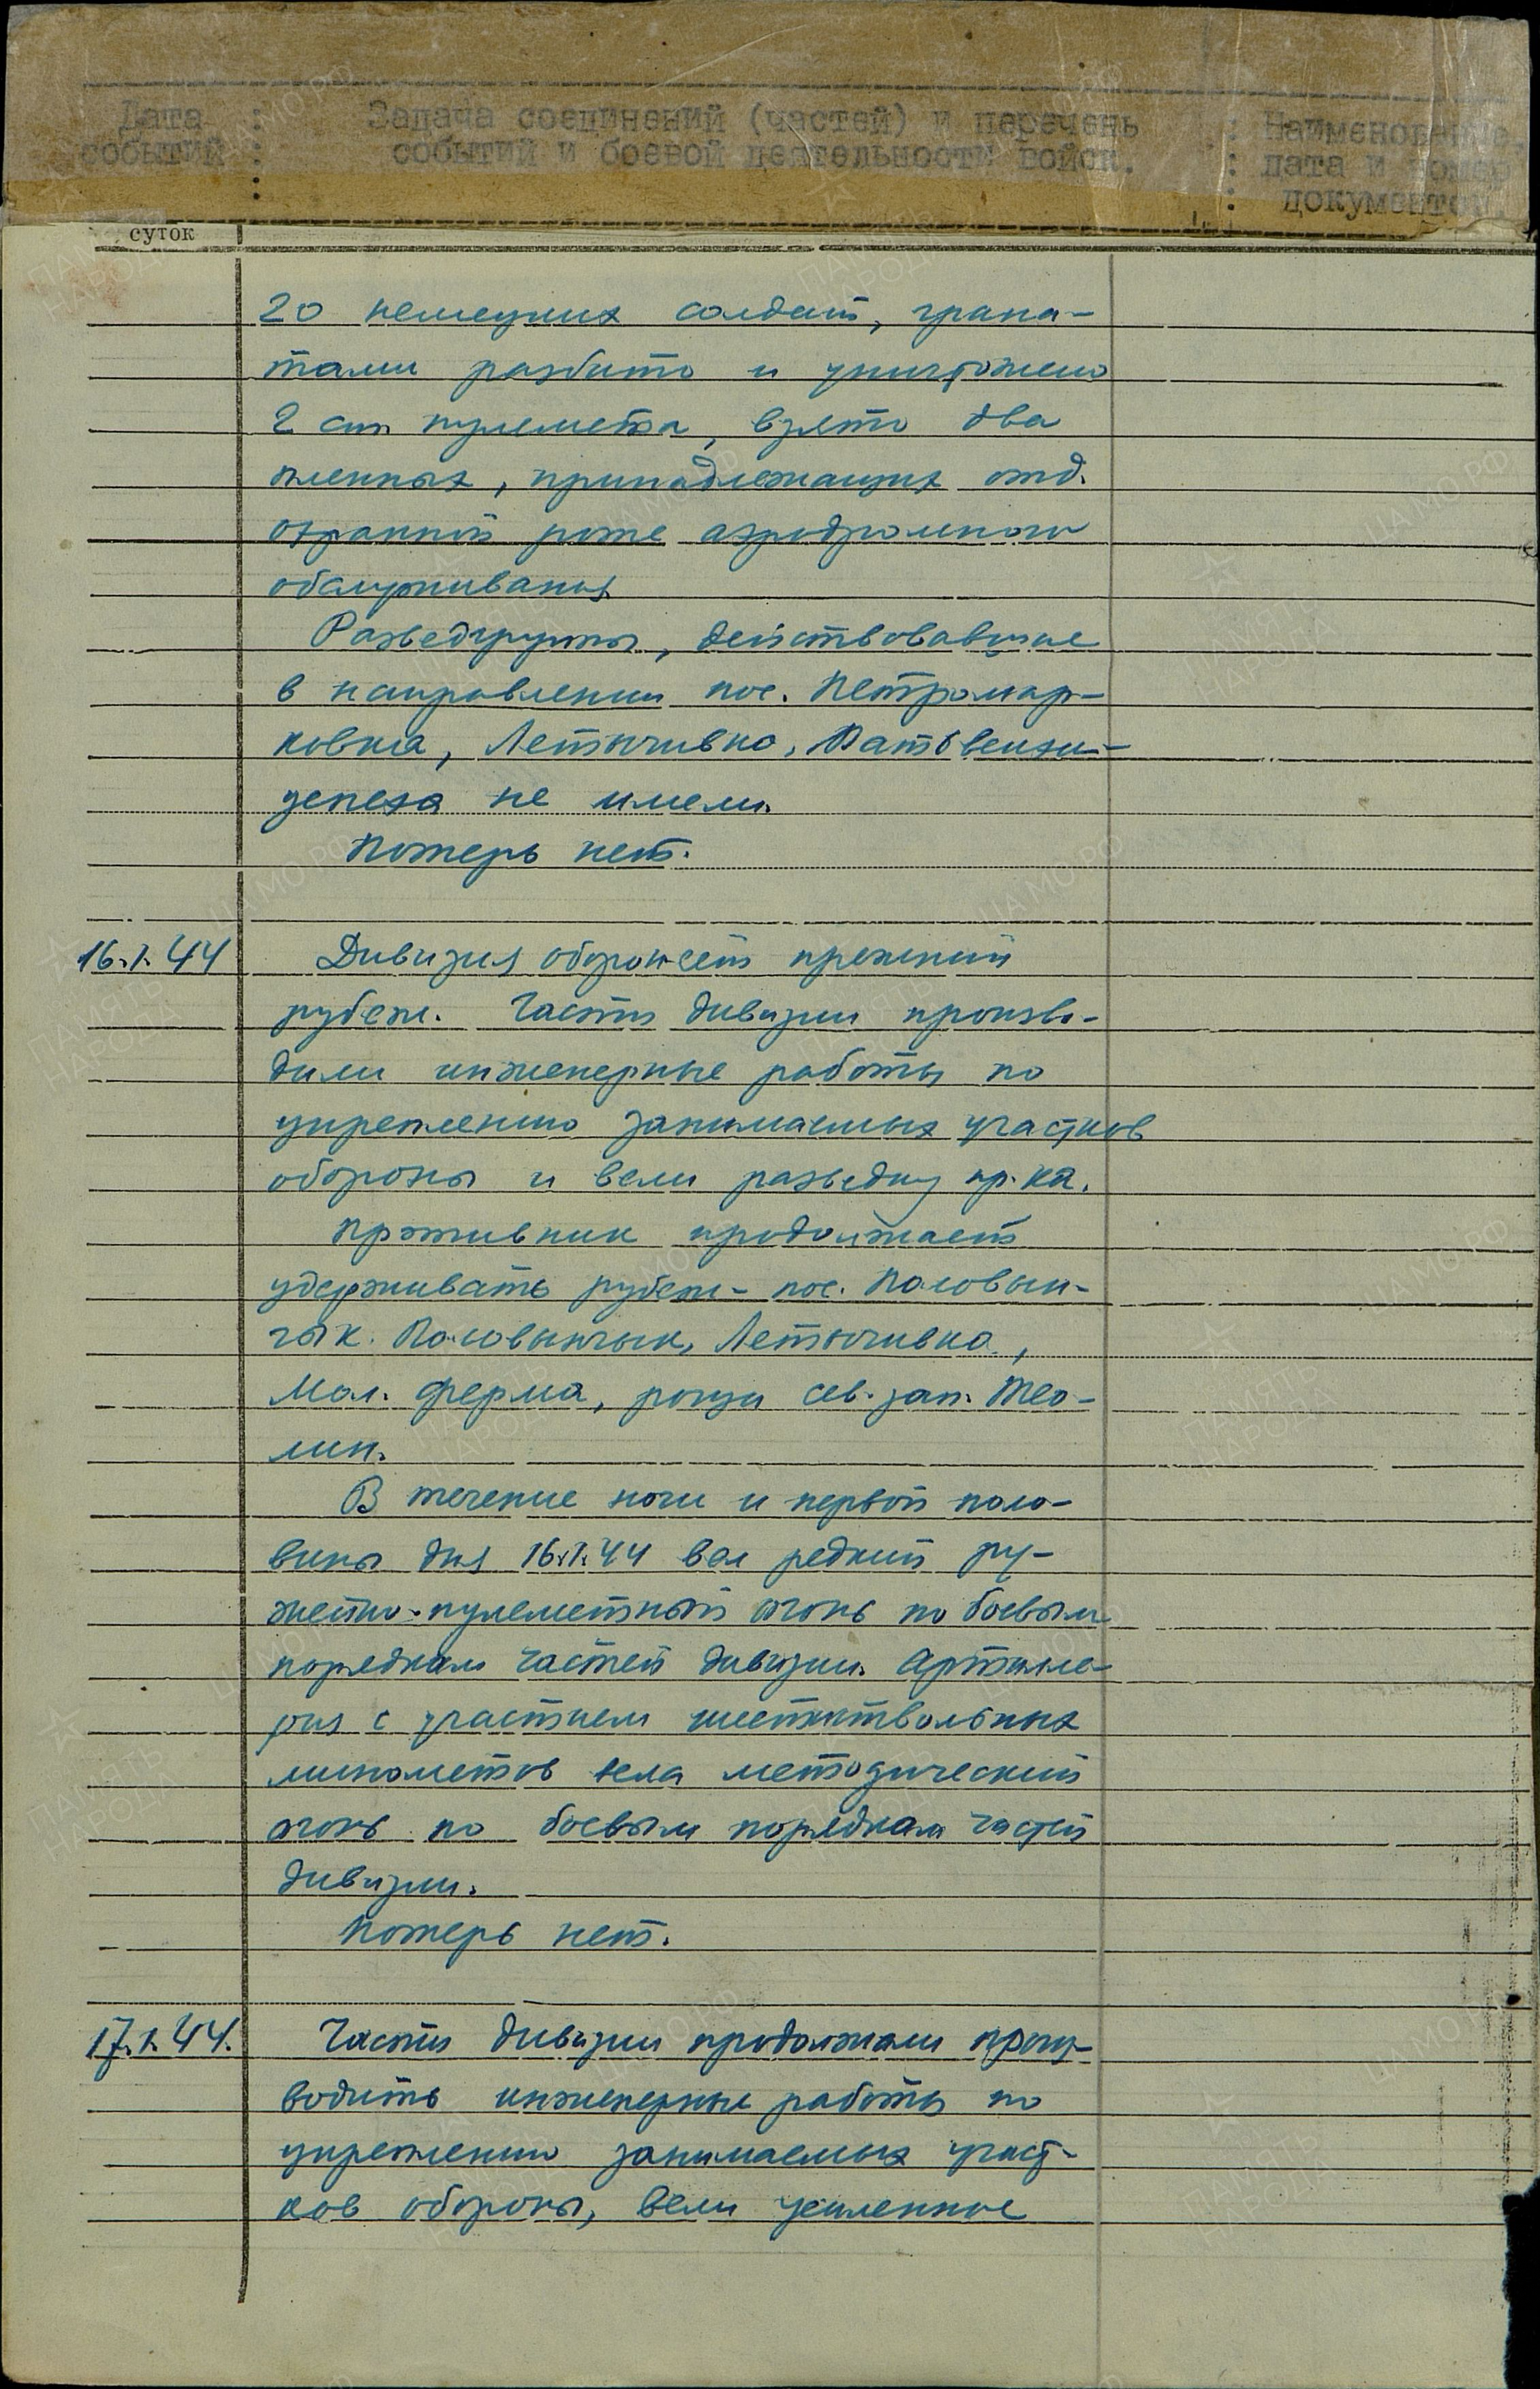 Дата : Задача соединений (частей) и перечень : Наименование,
событий : событий и боевой деятельности войск. : дата и номер
: документов.
суток
20 немецких солдат, грана-
тами разбито и уничтожено
2 ст. пулемета, взято два
пленных, принадлежащих отд.
охранной роте аэродромного
обслуживания
Разведгруппы, действовавшие
в направлении пос. Петромар-
ковка, Летычивка,
успеха не имели.
Потерь нет.
16.1.44 Дивизия обороняет прежний
рубеж. Части дивизии произво-
дили инженерные работы по
укреплению занимаемых участков
обороны и вели разведку пр-ка.
Противник продолжает
удерживать рубеж - пос. Половын-
чык. Половынчык, Летычивка,
Мол. ферма, рощи сев. зап. Тео-
лин.
В течение ночи и первой поло-
вины дня 16.1.44 вел редкий ру-
жейно-пулеметный огонь по боевым
порядкам частей дивизии. Артилле-
рия с участием шестиствольных
минометов вела методический
огонь по боевым порядкам частей
дивизии.
Потерь нет.
17.1.44. Части дивизии продолжали произ-
водить инженерные работы по
укреплению занимаемых участ-
ков обороны, вели усиленное